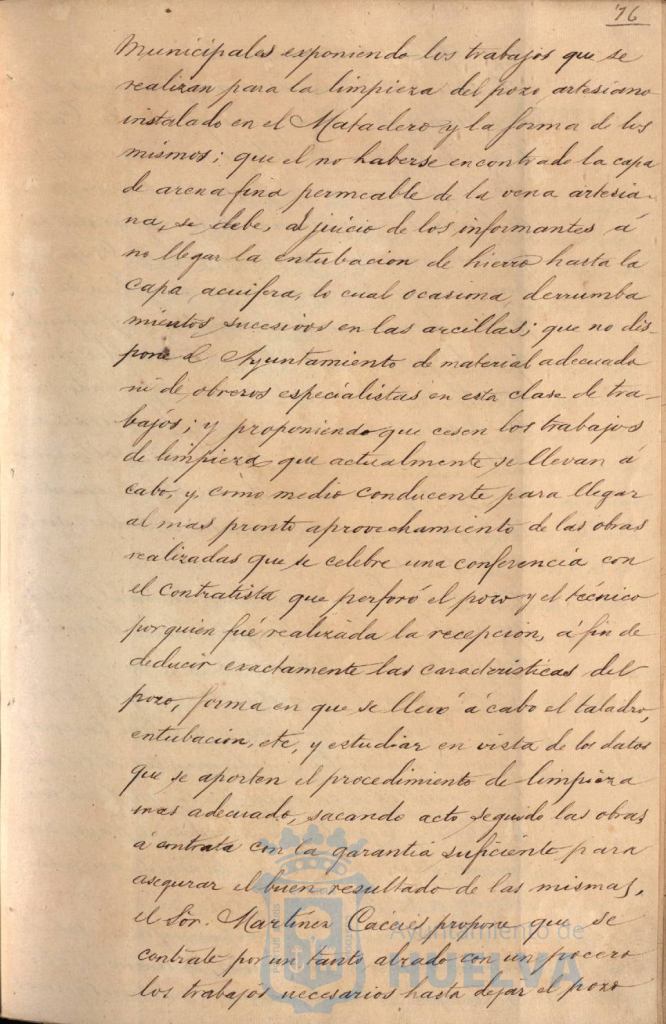 76
Municipales exponiendo los trabajos que se
realizan para la limpieza del pozo artesiano
instalado en el Matadero y la forma de los
mismos; que el no haberse encontrado la capa
de arena fina permeable de la vena artesia-
na, se debe, al juicio de los informantes á
no llegar la entubacion de hierro hasta la
capa acuifera, lo cual ocasiona derrumba
mientos sucesivos en las arcillas; que no dis-
pone el Ayuntamiento de material adecuado
ni de obreros especialistas en esta clase de tra-
bajos; y proponiendo que cesen los trabajos
de limpieza que actualmente se llevan á
cabo, y, como medio conducente para llegar
al mas pronto aprovechamiento de las obras
realizadas que se celebre una conferencia con
el contratista que perforó el pozo y el técnico
por quien fué realizada la recepción, á fin de
deducir exactamente las caracteristicas del
pozo, forma en que se llevó á cabo el taladro,
entubacion, etc, y estudiar en vista de los datos
que se aporten el procedimiento de limpieza
mas adecuado, sacando acto seguido las obras
á contrata con la garantia suficiente para
asegurar el buen resultado de las mismas,
el Sór. Martínez Cáceres propone que se
contrate por un tanto alzado con un pocero
los trabajos necesarios hasta dejar el pozo
Ayuntamiento de
HUELVA